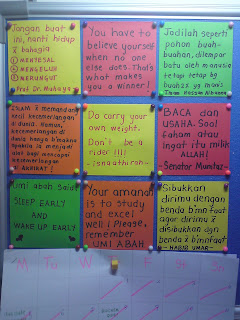 Jangan buat
ini, nanti hidup
x bahagia
① MENYESAL
② MENGELUH
③ MERUNGUT
Prof. Dr. Muhaya
You have to
believe yourself
when no one
else does. That's
what makes
you a winner!
Jadilah seperti
pohon buah-
buahan, dilempar
batu oleh manusia
tetapi tetap bg
buah2x yg manis
Imam Hassan Albanna
ISLAM x memandang
kecil kecemerlangan
di dunia. Namun,
kecemerlangan di
dunia hanya b'makna
apabila ia menjadi
bagi mencapai
kecemerlangan
AKHIRAT!
Do carry your
own weight.
Don't be a
rider !!!
BACA dan
USAHA. Soal
faham atau
ingat itu milik
ALLAH!
-Senator Mumtaz-
Umi abah said
SLEEP EARLY
AND
WAKE UP EARLY
Your amanah
is to study
and excel
well! Please,
remember
UMI ABAH
Sibukkan
dirimu dengan
benda b'manfaat
agar dirimu x
disibukkan dgn
benda x b'manfaat
-HABIB UMAR-
M T W T F S S